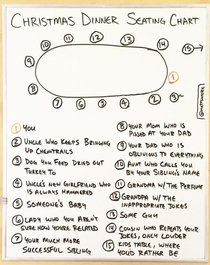 CHRISTMAS DINNER SEATING CHART
10
11
12
13
14
15
9
8
7
6
5
4
3
2
1
1 YOU
2 UNCLE WHO KEEPS BRINGING
UP CHEMTRAILS
3 DOG YOU FEED DRIED OUT
TURKEY TO
4 UNCLE'S NEW GIRLFRIEND WHO
IS ALWAYS HAMMERED
5 SOMEONE'S BABY
6 LADY WHO YOU AREN'T
SURE HOW YOU'RE RELATED
7 YOUR MUCH MORE
SUCCESSFUL SIBLING
8 YOUR MOM WHO IS
PISSED AT YOUR DAD
9 YOUR DAD WHO IS
OBLIVIOUS TO EVERYTHING
10 AUNT WHO CALLS YOU
BY YOUR SIBLING'S NAME
11 GRANDMA W/ THE PERFUME
12 GRANDPA W/ THE
INAPPROPRIATE JOKES
13 SOME GUY
14 COUSIN WHO REPEATS YOUR
JOKES, ONLY LOUDER
15 KIDS TABLE, WHERE
YOU'D RATHER BE